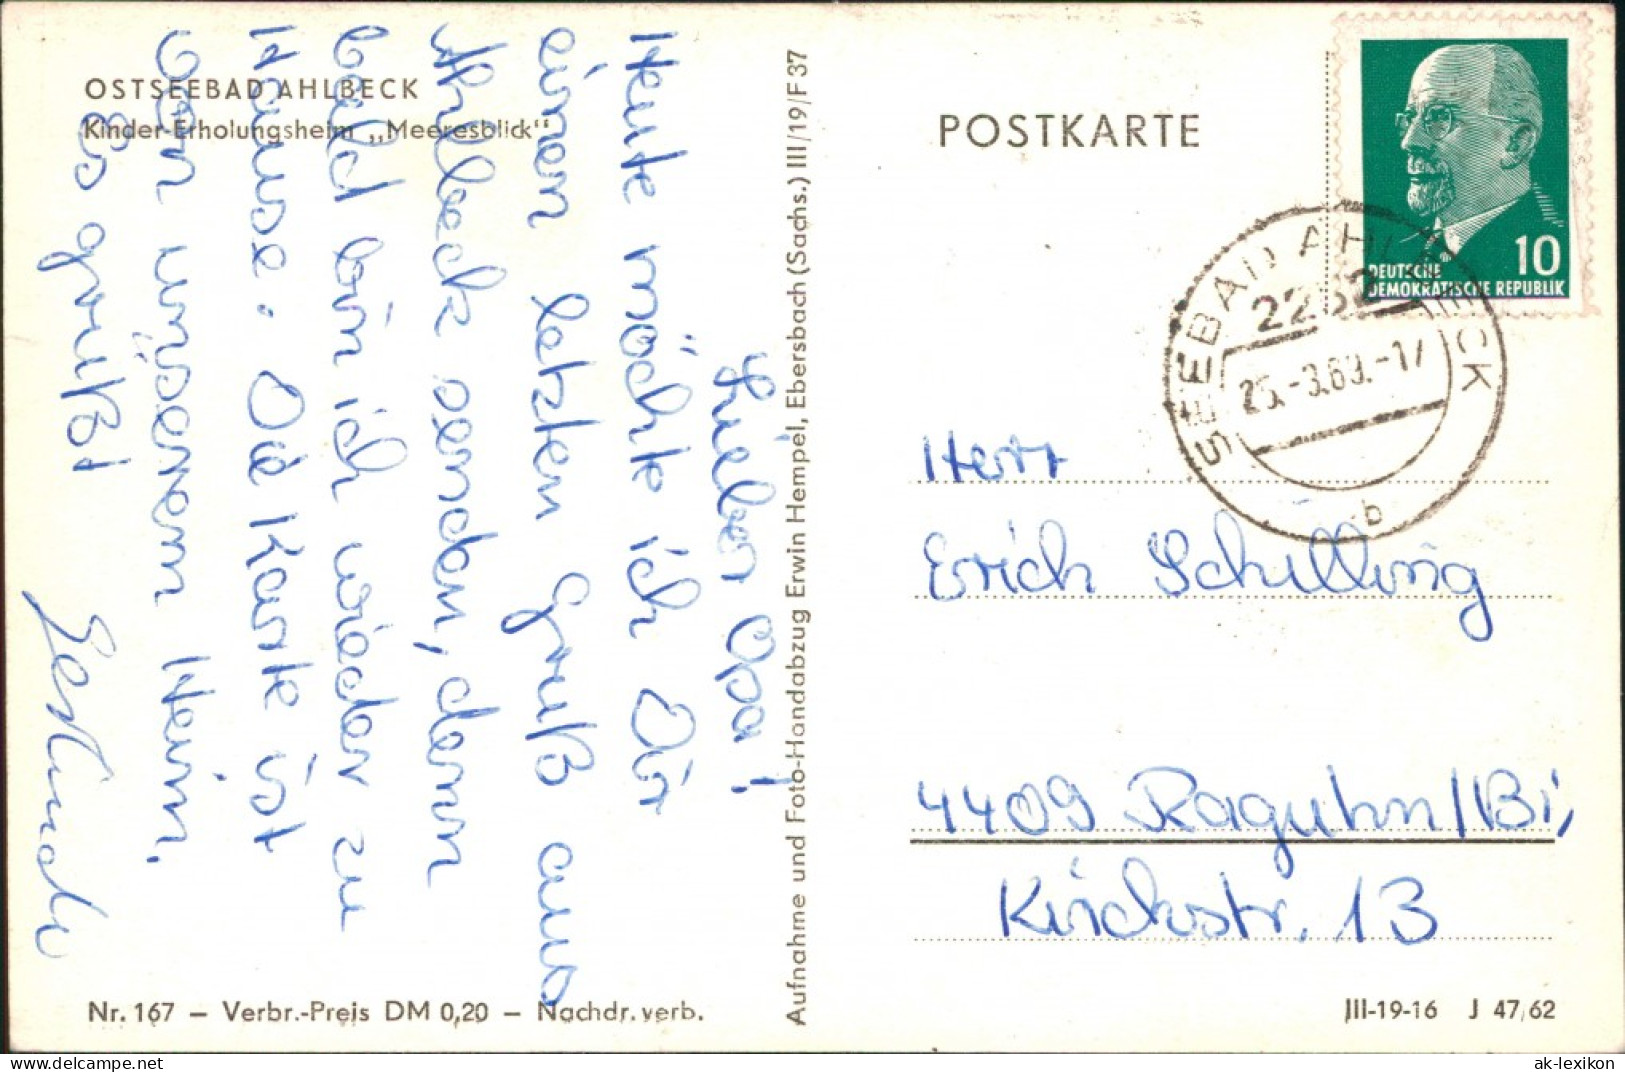 OSTSEEBAD AHLBECK
Kinder-Erholungsheim „Meeresblick“
Lieber Opa!
Heute möchte ich Dir
einen letzten Gruß aus
Ahlbeck senden, denn
bald bin ich wieder zu
Hause. Die Karte ist
von unserem Heim.
Es grüßt
Nr. 167 – Verbr.-Preis DM 0,20 – Nachdr. verb.
Aufnahme und Foto-Handabzug Erwin Hempel, Ebersbach (Sachs.) III/19/F 37
POSTKARTE
10
DEUTSCHE
DEMOKRATISCHE REPUBLIK
SEEBAD AHLBECK
2252
25.-3.69.-17
b
Herr
Erich Schilling
4409 Raguhn/Bi,
Kirchstr. 13
III-19-16 J 47/62
delcampe.net
ak-lexikon